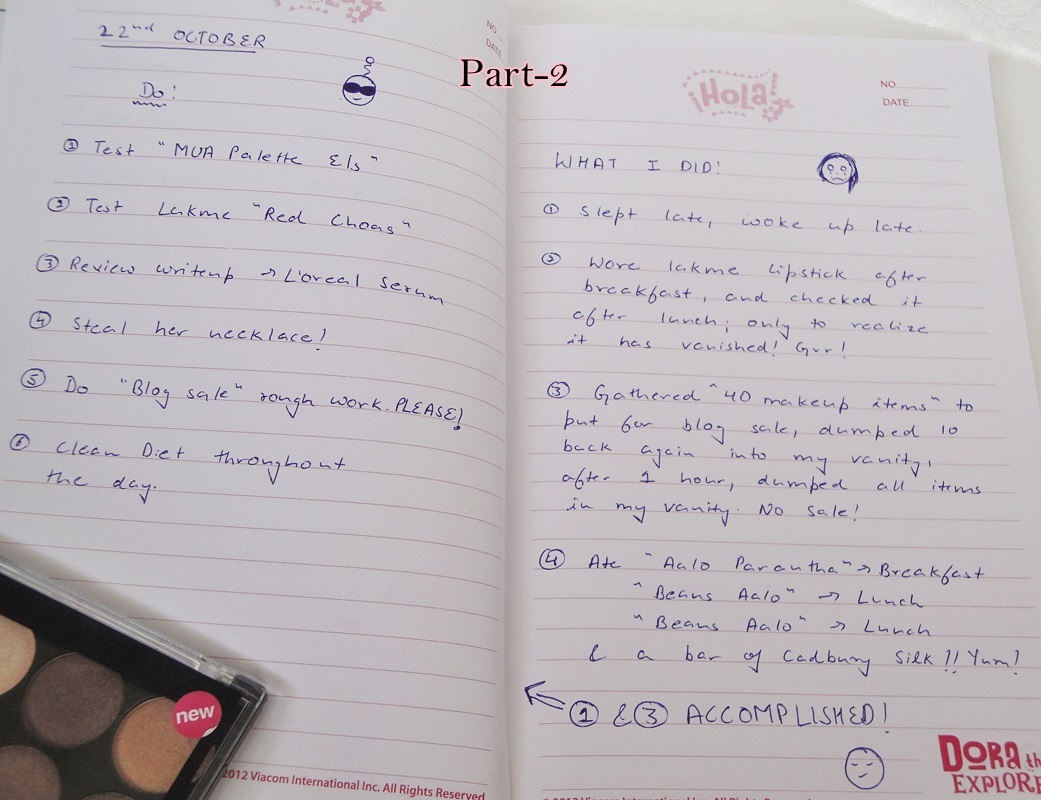 22nd OCTOBER
Do!
① Test "MUA Palette E/s"
② Test Lakme "Red Choas"
③ Review writeup → L'oreal serum
④ Steal her necklace!
⑤ Do "Blog sale" rough work. PLEASE!
⑥ Clean Diet throughout
the day.
new
2012 Viacom International Inc. All Rights Reserved
NO
DATE
Part-2
¡HOLa!
NO.................
DATE.............
WHAT I DID!
① Slept late, woke up late.
② Wore lakme lipstick after
breakfast, and checked it
after lunch; only to realize
it has vanished! Grr!
③ Gathered "40 makeup items" to
put for blog sale, dumped 10
back again into my vanity,
after 1 hour, dumped all items
in my vanity. No sale!
④ Ate "Aalo Parantha" → Breakfast
"Beans Aalo" → Lunch
"Beans Aalo" → Lunch
& a bar of Cadbury Silk!! Yum!
① & ③ ACCOMPLISHED!
DORA th
EXPLORE